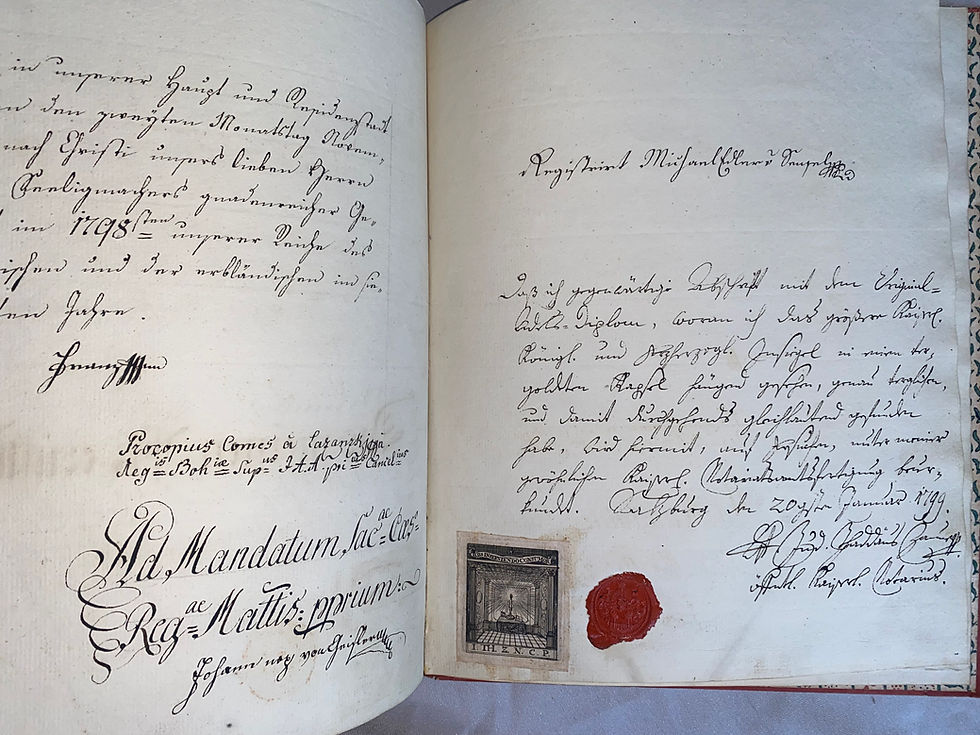 in unserer Haupt und Residenzstadt
n den zweyten Monatstag Novem-
nach Christi unsers lieben Herrn
Seeligmachers gnadenreicher Ge-
im 1798sten unserer Reiche des
ischen und der erbländischen im sie-
ten Jahre.
Franz
Procopius Comes à Lazanzky
Regis Bohiae Supus & A.A. prius Cancelius
Ad Mandatum Sacae Caes:
Regae Mattis: pprium:
Johann nep von Geissler
Registrirt Michael Edler v
Daß ich gegenwärtige Abschrift mit dem Original-
Adels-Diplom, woran ich das größere Kaiserl.
Königl. und Erzherzogl. Insiegel in einer ver-
goldeten Kapsel hängend gesehen, genau verglichen,
und damit durchgehends gleichlautend gefunden
habe, wird hiermit, auf Ersuchen, unter meiner
gewöhnlichen Kaiserl. Notariatsamtsfertigung beur-
kundet. Salzburg den 20ger Januar 1799.
Jud. Thaddäus
öffentl. Kayserl. Notarius.
I. TH. Z. N. C. P.